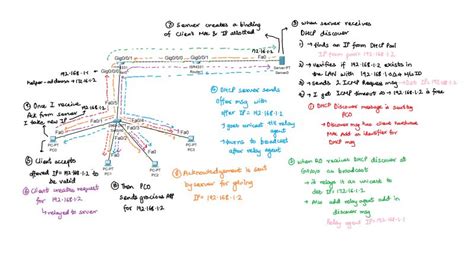 ⑦ Server creates a binding
of Client MAC & IP allotted
③ when server receives
DHCP discover
1) → finds an IP from DHCP Pool
IP from pool 192.168.1.2
→ verifies if 192.168.1.2 exists in
the LAN with
→ sends 2 ICMP Request msg
→ if get ICMP timeout so 192.168.1.2 is free
192.168.1.1
helper-address
192.16.1.2
Gig0/0/1
Gig0/0/0
Gig0/0
ISR4331
Fa0
Server-PT
Fa0/5
Fa0/1
Fa0/2
Fa0/3
Fa0/4
Fa0
Fa0
Fa0
Fa0
PC-PT
PC-PT
PC1
PC-PT
PC-PT
PC2
④ DHCP server sends
offer msg with
offer IP = 192.168.1.2
→ sent unicast till relay
agent
→ turns to broadcast
after relay agent
① DHCP Discover message is sent by
PC0
→ Discover msg has client hardware
MAC Add as identifier for
DHCP msg
⑨ Once I receive
Ack from server
I take new IP
⑤ Client accepts
offered IP = 192.168.1.2
to be valid
⑥ Client creates request
for 192.168.1.2
→ relayed to server
⑩ Then PC0
sends gracious ARP
for 192.168.1.2
⑧ Acknowledgement is sent
by server for giving
IP = 192.168.1.2
② when R0 receives DHCP discover at
Gig0/0/0 as broadcast
→ it relays it as unicast to
dst IP = 192.16.1.2
→ Also add relay agent add in
discover msg
Relay agent IP = 192.168.1.1